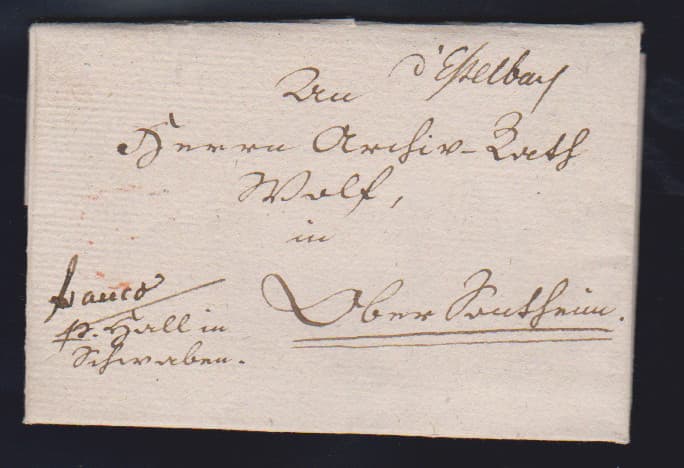 d'Esselbach
An
Herrn Archiv-Rath
Wolf,
in
Ober Sontheim.
franco
p. Hall in
Schwaben.